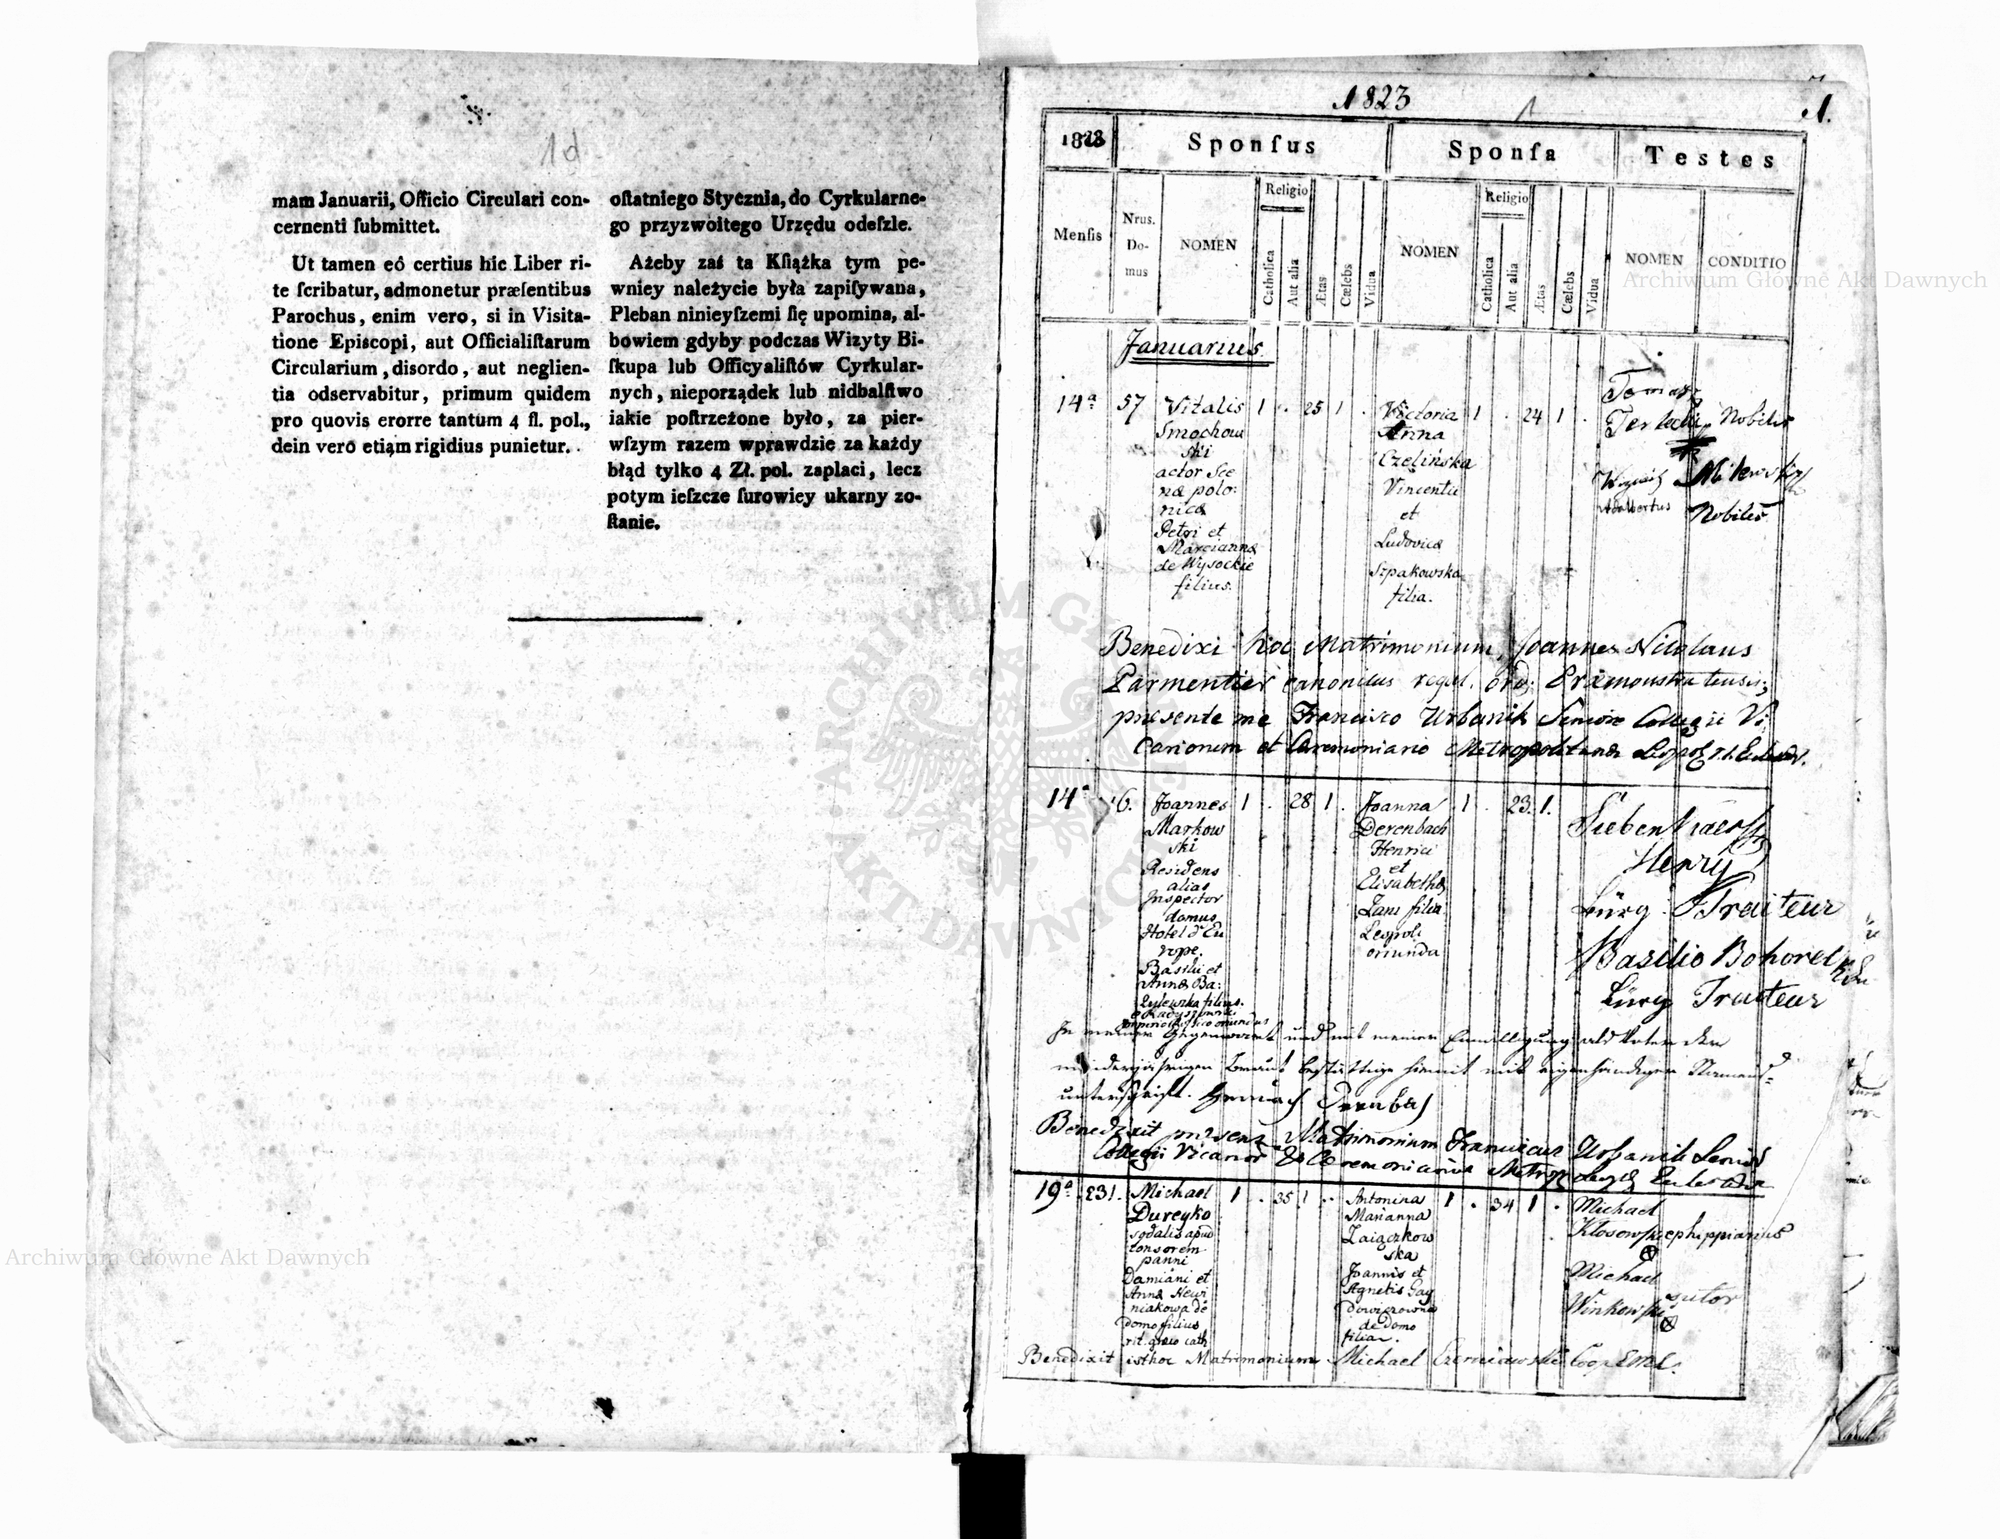 1d
mam Januarii, Officio Circulari con-
cernenti ſubmittet.
Ut tamen eó certius hic Liber ri-
te ſcribatur, admonetur præſentibus
Parochus, enim vero, si in Visita-
tione Episcopi, aut Officialiſtarum
Circularium, disordo, aut neglien-
tia odservabitur, primum quidem
pro quovis erorre tantum 4 fl. pol.,
dein vero etiam rigidius punietur.
oſtatniego Stycznia, do Cyrkularne-
go przyzwoitego Urzędu odeſzle.
Ażeby zaś ta Kſiążka tym pe-
wniey należycie była zapiſywana,
Pleban ninieyſzemi ſię upomina, al-
bowiem gdyby podczas Wizyty Bi-
ſkupa lub Officyaliſtów Cyrkular-
nych, nieporządek lub nidbalſtwo
iakie poſtrzeżone było, za pier-
wſzym razem wprawdzie za każdy
błąd tylko 4 Zł. pol. zaplaci, lecz
potym ieſzcze ſurowiey ukarny zo-
ſtanie.
1823
1
1.
1823 Sponſus Sponſa Testes
Menſis
Nrus.
Do-
mus
NOMEN
Religio
Catholica
Aut alia
Ætas
Cælebs
Vidua
NOMEN
Religio
Catholica
Aut alia
Ætas
Cælebs
Vidua
NOMEN
CONDITIO
Januarius
14ª 57 Vitalis 1 . 25 1 .
Smochow
ski
actor Sce
næ polo:
nicæ
Petri et
Mariannæ
de Wysockie
filius.
Victoria 1 . 24 1 .
Anna
Czelińska
Vincentii
et
Ludovicæ
Szpakowska
filia.
Tomasz
Nobilis
Adalbertus
Milewski
Nobilis
Benedixi hoc Matrimonium, Joannes Nicolaus
Parmentier canonicus regul. ord: Præmonstratensis,
præsente me Francisco Urbanik Seniore Collegii Vi
cariorum et Ceremoniario Metropolitanæ Leopol
14ª 6. Joannes 1 . 28 1 .
Markow
ski
Residens
alias
Inspector
domus
Hotel d'Eu
rope.
Basilii et
Annæ Ba:
filius.
Joanna 1 . 23. 1.
Derenbach
Henrici
et
Elisabethæ
Lans filia
Leopoli
oriunda
Henry
Bürg. Traiteur
Basilio
Bürg Traiteur
In meiner Gegenwart und mit meiner Einwilligung als Vater der
minderjährigen Braut bestättige hiemit mit eigenhändigen Namens-
unterschrift.
Benedixit præsens Matrimonium Franciscus Urbanik Senior
Collegii Vicarior & Ceremoniarius Metrop
19ª 231. Michael 1 . 35 1 .
Dureyko
sodalis apud
tonsorem
panni
Damiani et
Annæ
niakowa de
domo filius
rit. græco cath
Antonina 1 . 34 1 .
Marianna
Zaiączkow
ska
Joannis et
Agnetis Gay
dowiczowna
de domo
filia.
Michael
Klosowski ephippiarius
Michael
Winkowski sutor
Benedixit isthoc Matrimonium Michael
Archiwum Główne Akt Dawnych
Archiwum Główne Akt Dawnych
ARCHIWUM GŁÓWNE AKT DAWNYCH